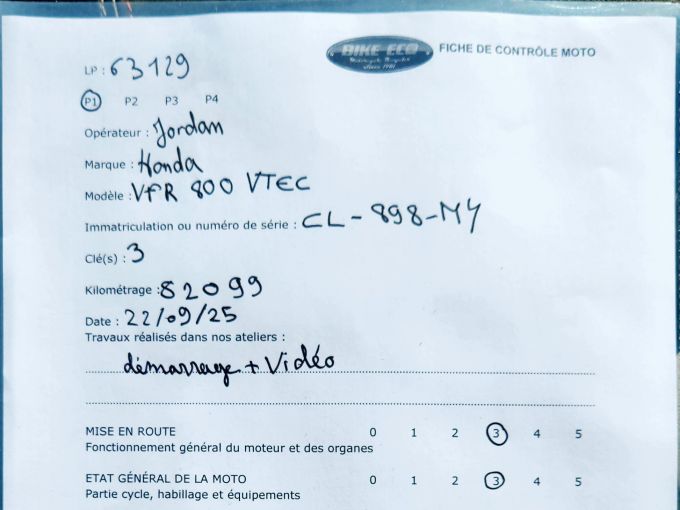 BIKE ECO
FICHE DE CONTRÔLE MOTO
LP : 63129
P1 P2 P3 P4
Opérateur : Jordan
Marque : Honda
Modèle : VFR 800 VTEC
Immatriculation ou numéro de série : CL-898-MY
Clé(s) : 3
Kilométrage : 82099
Date : 22/09/25
Travaux réalisés dans nos ateliers :
démarrage + Vidéo
MISE EN ROUTE 0 1 2 3 4 5
Fonctionnement général du moteur et des organes
ETAT GÉNÉRAL DE LA MOTO 0 1 2 3 4 5
Partie cycle, habillage et équipements